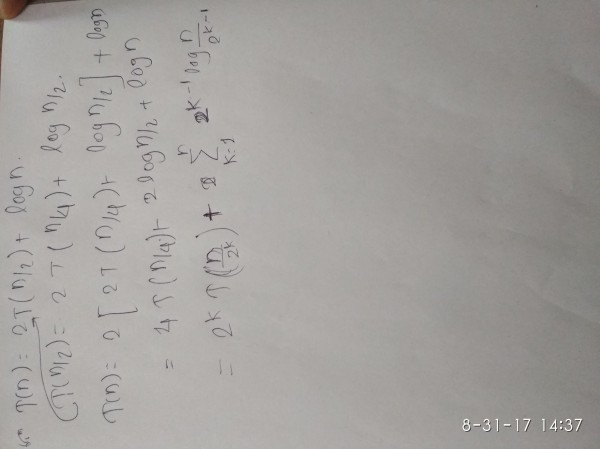 T(n) = 2T(n/2) + logn.
T(n/2) = 2T(n/4) + log n/2.
T(n) = 2[2T(n/4) + log n/2] + logn
= 4T(n/4) + 2logn/2 + logn
= 2^k T(n/2^k) + Σ_{k=1}^{n} 2^{k-1} log n/2^{k-1}
8-31-17 14:37